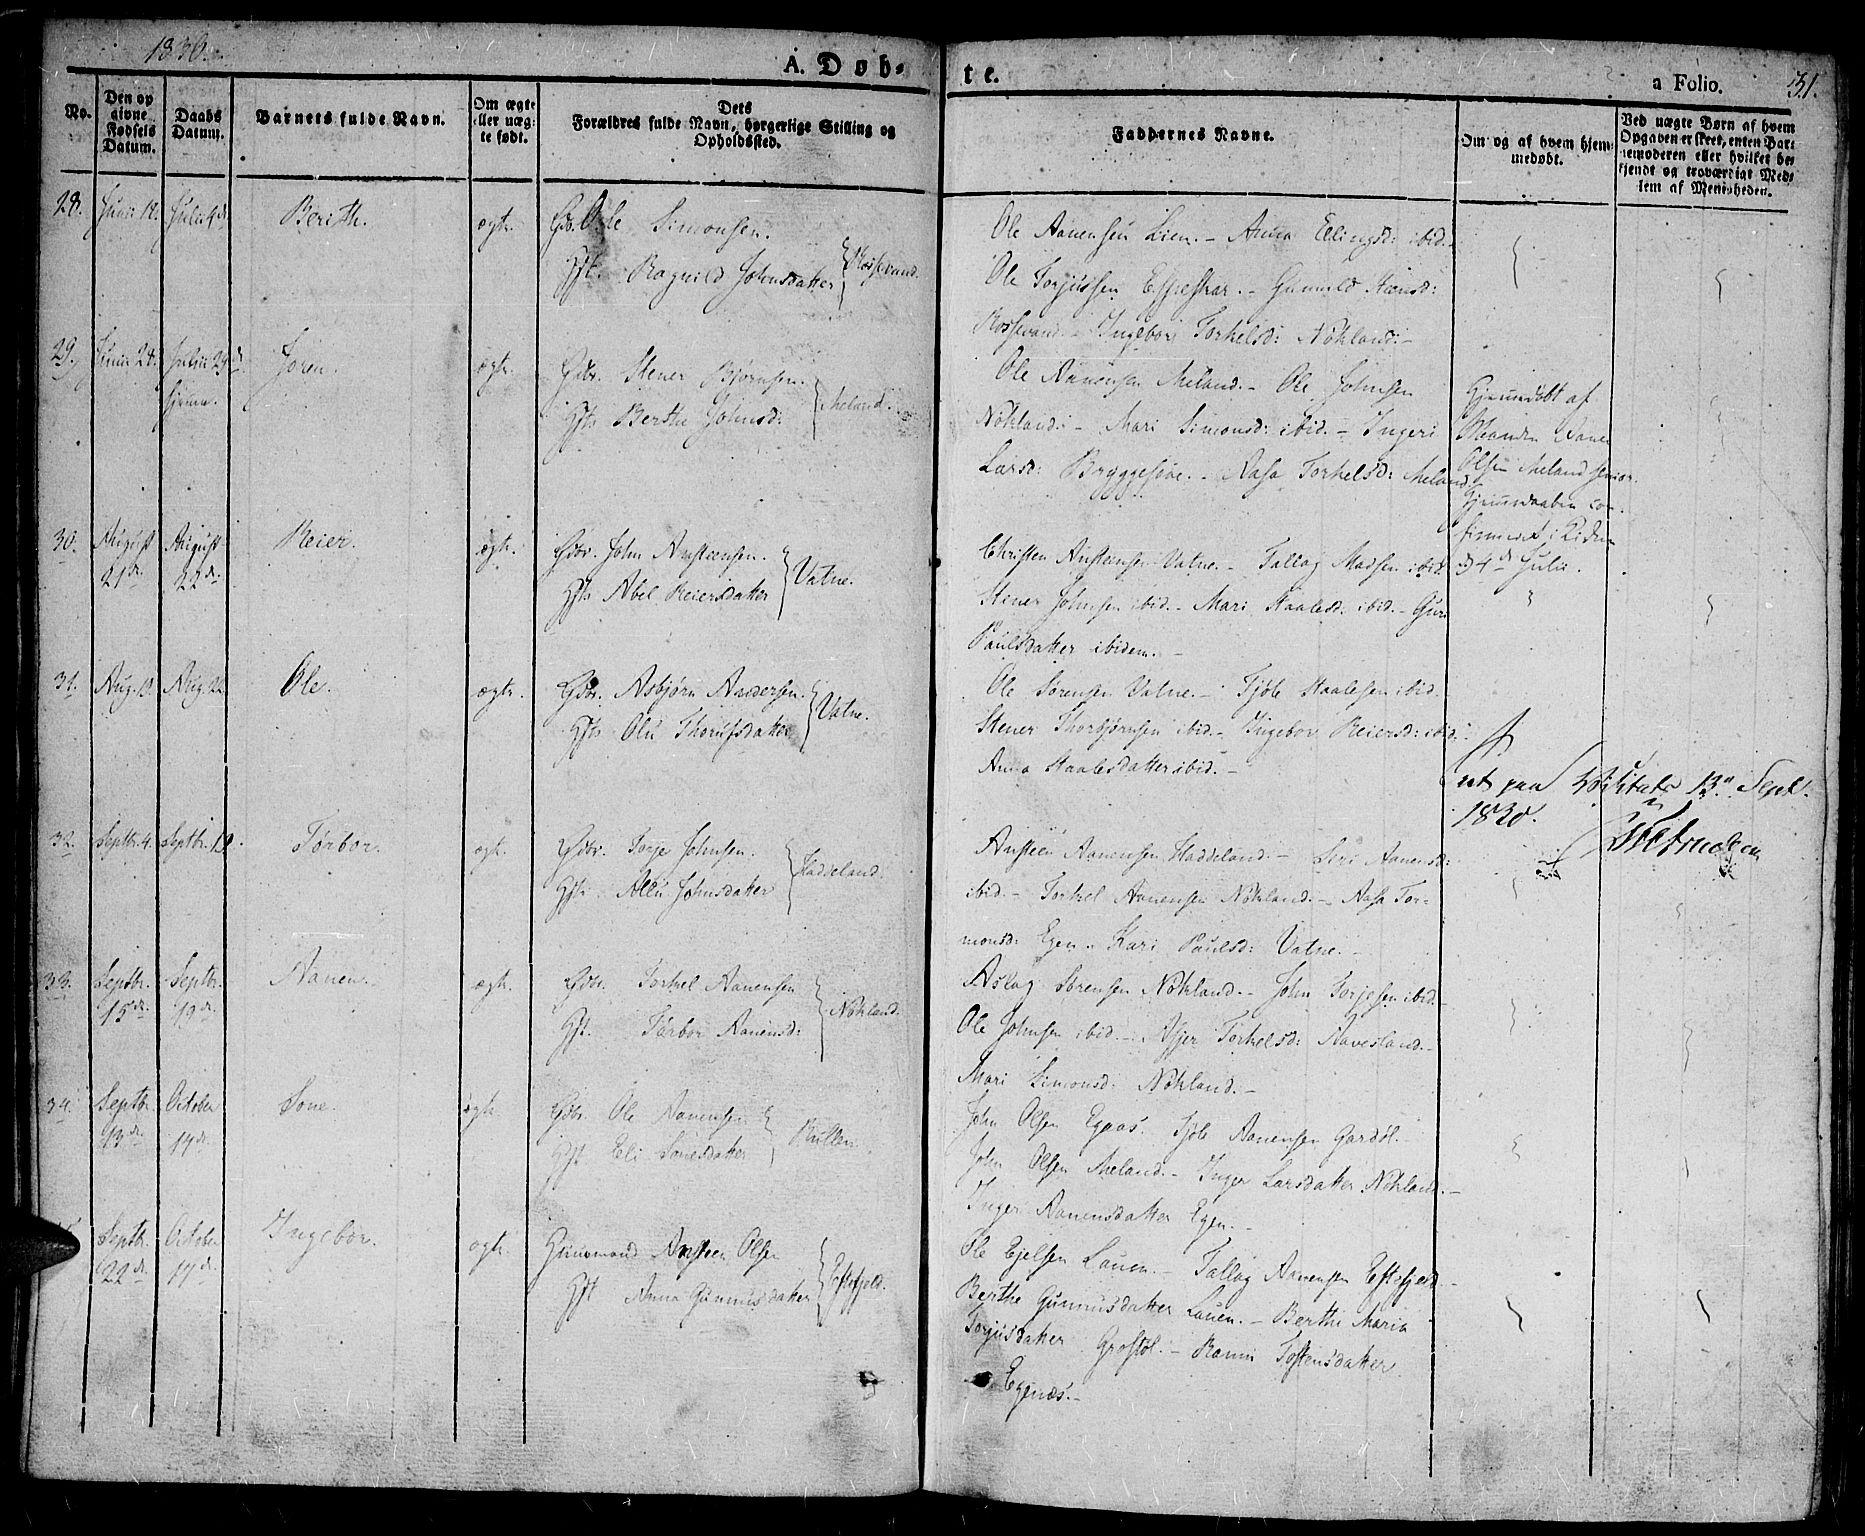 1830.
A. Døb-
te.
a Folio.
31.
No.
Den op
givne
Fødsels
Datum.
Daabs
Datum.
Barnets fulde Navn.
Om ægte
eller uæg-
te født.
Dets
Forældres fulde Navn, borgerlige Stilling og
Opholdssted.
Faddernes Navne.
Om og af hvem hjem-
medøbt.
Ved uægte Børn af hvem
Opgaven er skeet, enten Bar-
nemoderen eller hvilket be-
kjendt og troværdigt Med-
lem af Menigheden.
28. Junii 12. Julii 4de Berith. ægte. Gdbr. Ole Simonsen.
Hst. Ragnild Johnsdatter Rossevand.
Ole Aanensen Lien. - Anna Ellingsd: ibid.
Ole Torjussen Espestøar. - Gunnild
Rossevand. - Ingebor Torkelsd: Nøkland. -
29. Junii 28. Julii 29de Joren. ægte. Gdbr. Stener Bjørnsen.
hjemme.
Hst. Berthe Johnsd: Meland.
Ole Aanensen Meland. - Ole Johnsen
Nøkland. - Mari Simonsd: ibid. - Ingeri
Larsd: Bryggesaae. - Aasa Torkelsd: Meland
Hjemmedøbt af
Aanen
Olsen Meland senior.
Hjemmedaaben con-
firmeret i Kirken
d 4de Julii.
30. August 21de August 22de Reier. ægte. Gdbr. John Ansteensen.
Hst. Abel Reiersdatter Vatne.
Christen Ansteensen Vatne. - Tallag Madsen ibid.
Stener Johnsen ibid. - Mari Staalesd: ibid. - Guri
Paulsdatter ibidem. -
31. Aug. 13. Aug. 22 Ole. ægte. Gdbr. Asbjørn Andersen.
Hst. Olu Thorufsdatter Vatne.
Ole Sørensen Vatne. - Tjøle Staalesen ibid.
Stener Thorbjørnsen ibid. - Ingebor Reiersd: ibid.
Anna Staalesdatter ibid. -
seet paa Visitats 13de Septr.
1830.
32. Septbr. 4. Septbr. 12. Tørbor. ægte. Gdbr. Torje Johnsen.
Hst. Allu Johnsdatter Haddeland.
Ansteen Aanensen Haddeland. - Siri Aanensd:
ibid. - Torkel Aanensen Nøkland. - Aasa Tor-
monsd: Egen. - Kari Paulsd: Vatne. -
33. Septbr. 15de Septbr. 19de Aanen. ægte. Gdbr. Torkel Aanensen
Hst. Tørbor Aanensd: Nøkland.
Aslag Sørensen Nøkland. - John Torjesen ibid. -
Ole Johnsen ibid. - Asjer Torkelsd: Aavesland. -
Mari Simonsd: Nøkland. -
34. Septbr. 13de October 14de Sone. ægte Gdbr. Ole Aanensen
Hst Eli Sonesdatter
John Olsen Egeaas. Tjøle Aanensen Gardøl. -
John Olsen Meland. - Inger Larsdatter Nøkland. -
Inger Aanensdatter Egen. -
Septbr. 22de October 17de Ingebor. ægte. Huusmand Ansteen Olsen
Hst Anna Gunnusdatter Eftefjeld.
Ole Ejelsen Lauen. - Tallag Aanensen Eftefjeld -
Berthe Gunnusdatter Lauen. - Berthe Maria
Torjusdatter Grostøl. - Ranni Tostensdatter
Egenæs. -